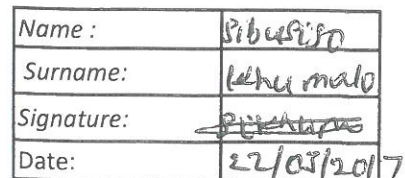 Name : Sibusiso
Surname: Khumalo
Signature:
Date: 22/03/2017